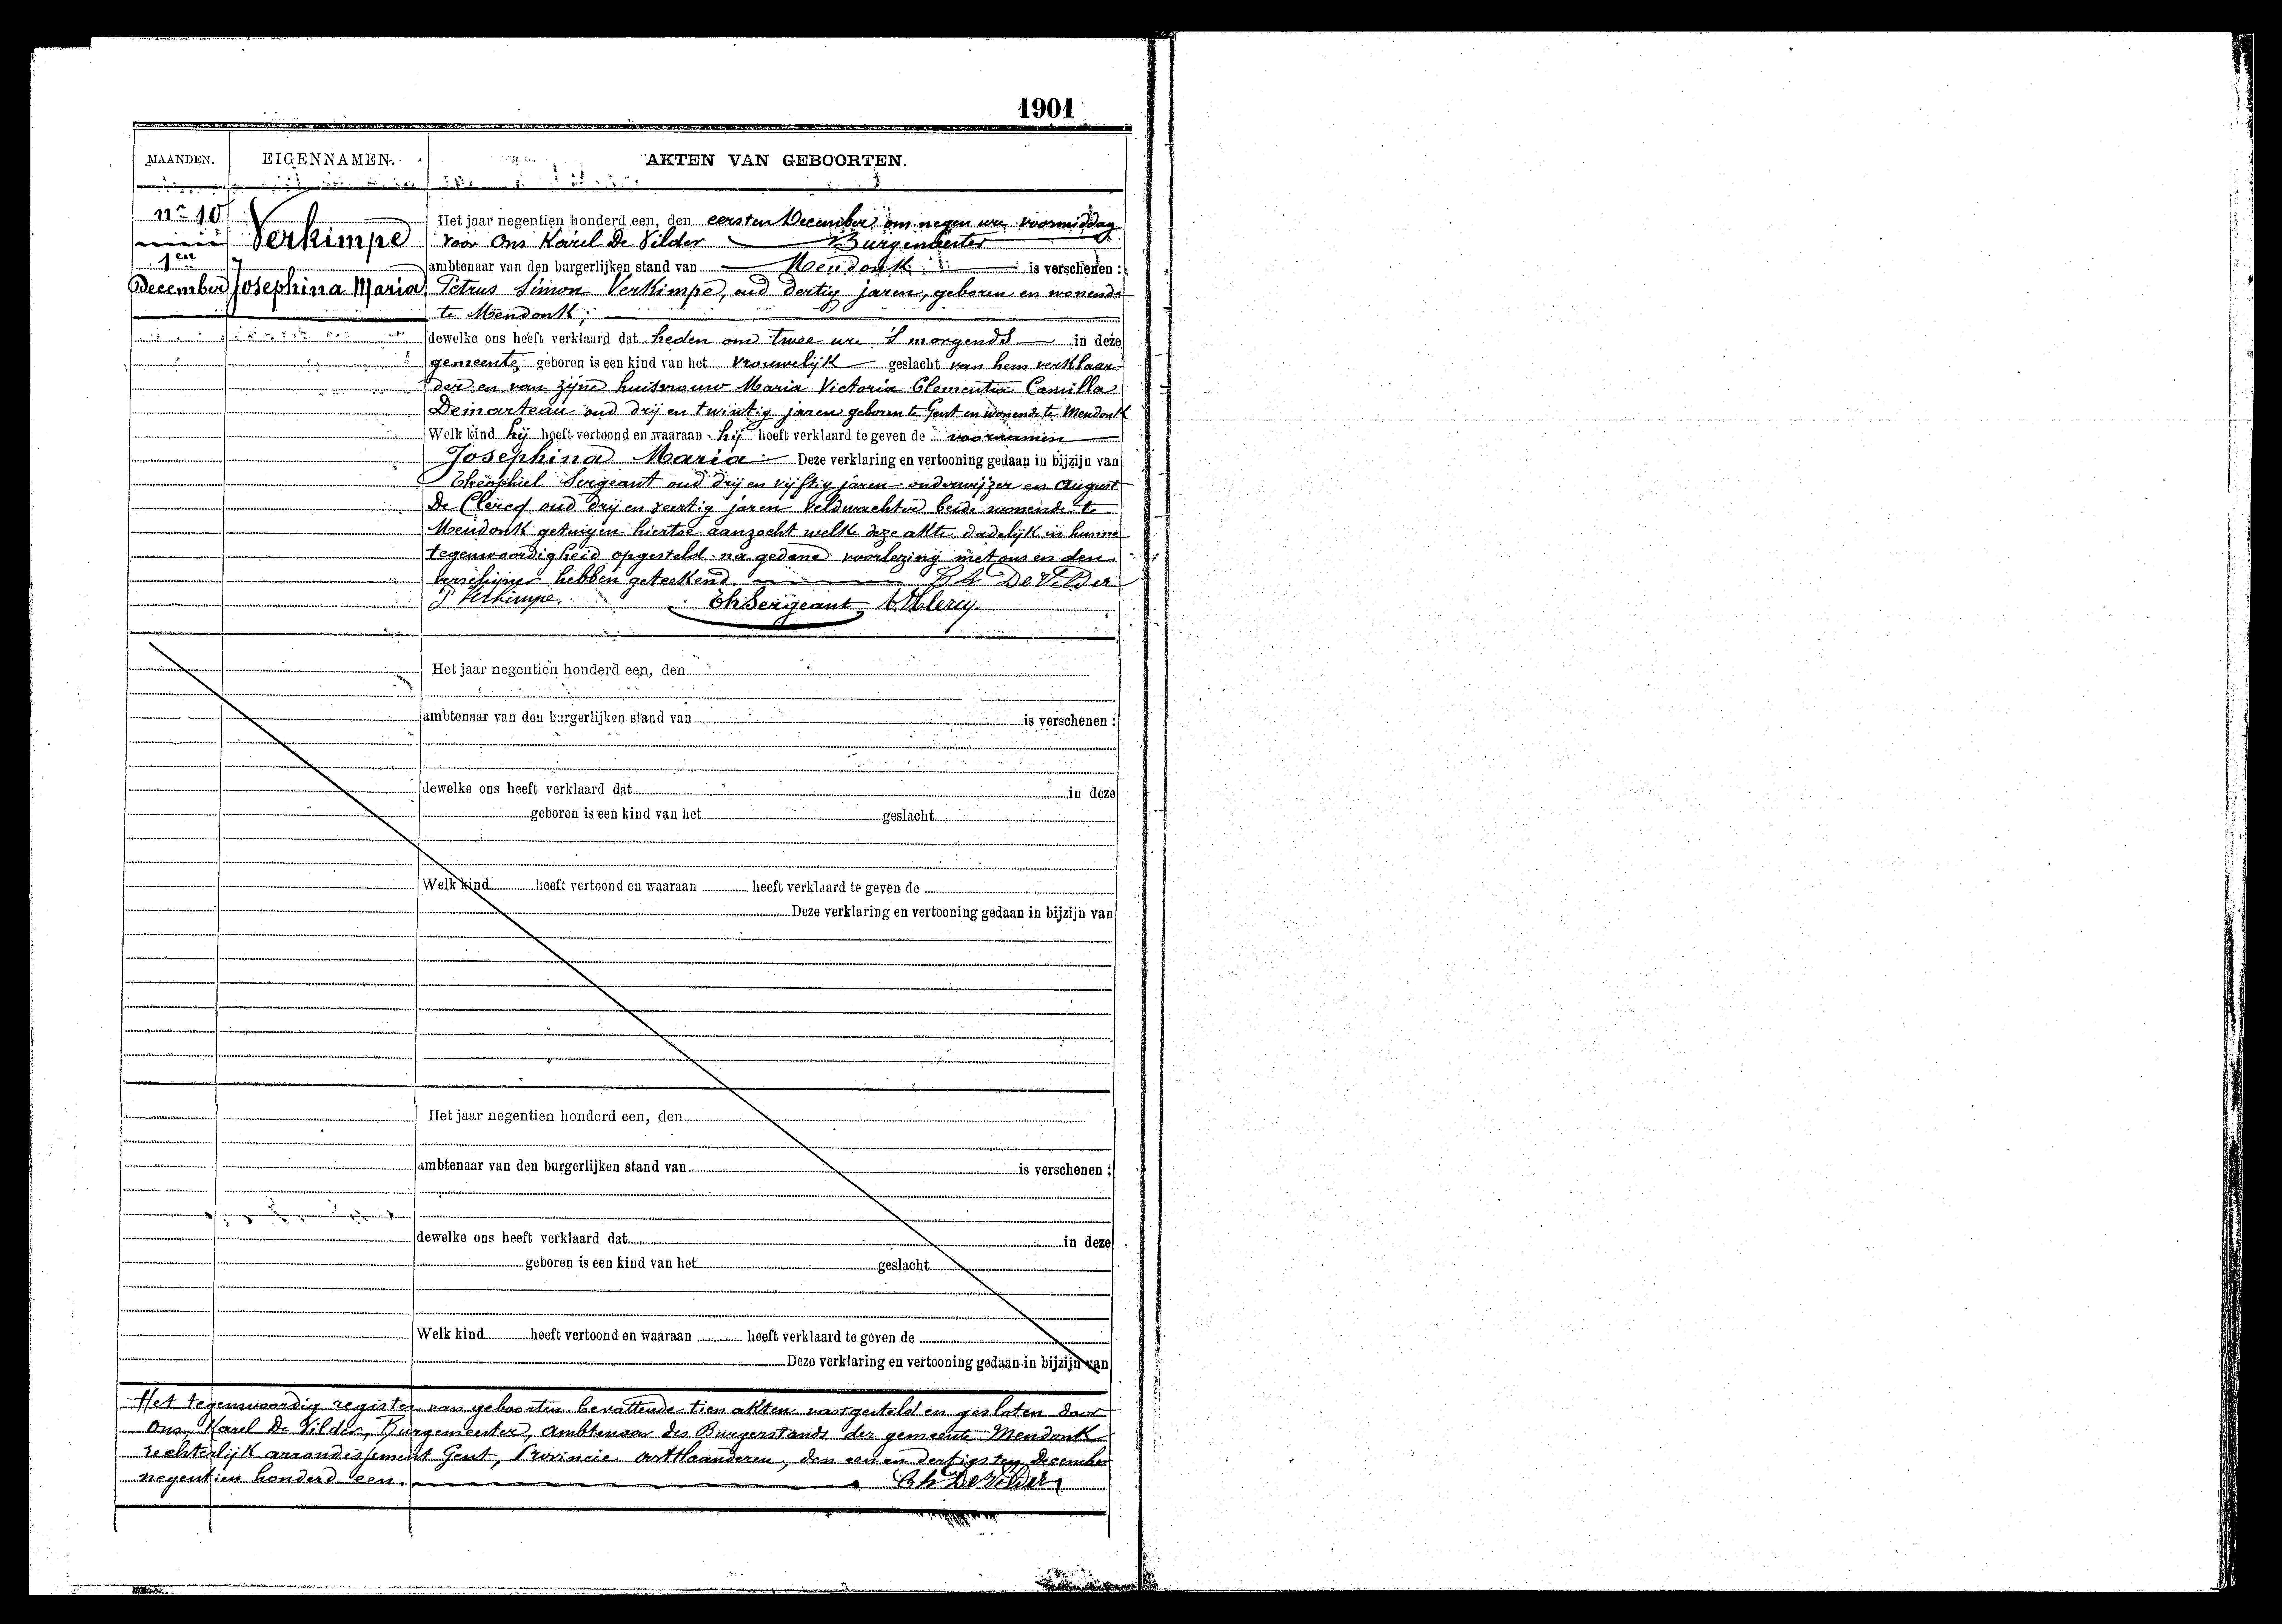 1901
MAANDEN. EIGENNAMEN. AKTEN VAN GEBOORTEN.
nr 10
1en
December
Verkimpe
Josephina Maria
Het jaar negentien honderd een, den eersten December om negen ure voormiddag
voor Ons Karel De Vilder Burgemeester
ambtenaar van den burgerlijken stand van Mendonk is verschenen :
Petrus Simon Verkimpe, oud dertig jaren, geboren en wonende
te Mendonk;
dewelke ons heeft verklaard dat heden om twee ure 's morgends in deze
gemeente geboren is een kind van het vrouwelijk geslacht van hem verklaar-
der en van zijne huisvrouw Maria Victoria Clementia Camilla
Demarteau oud drij en twintig jaren geboren te Gent en wonende te Mendonk
Welk kind hij heeft vertoond en waaraan hij heeft verklaard te geven de voornamen
Josephina Maria Deze verklaring en vertooning gedaan in bijzijn van
Theophiel Sergeant oud drij en vijftig jaren onderwijzer en August
De Clercq oud drij en veertig jaren veldwachter beide wonende te
Mendonk getuigen hiertoe aanzocht welke deze akte dadelijk in hunne
tegenwoordigheid opgesteld na gedane voorlezing met ons en den
verschijner hebben geteekend. Ch De Vilder
P Verkimpe. Th Sergeant
Het jaar negentien honderd een, den
ambtenaar van den burgerlijken stand van is verschenen :
dewelke ons heeft verklaard dat in deze
geboren is een kind van het geslacht
Welk kind heeft vertoond en waaraan heeft verklaard te geven de
Deze verklaring en vertooning gedaan in bijzijn van
Het jaar negentien honderd een, den
ambtenaar van den burgerlijken stand van is verschenen :
dewelke ons heeft verklaard dat in deze
geboren is een kind van het geslacht
Welk kind heeft vertoond en waaraan heeft verklaard te geven de
Deze verklaring en vertooning gedaan in bijzijn van
Het tegenwoordig register van geboorten bevattende tien akten vastgesteld en gesloten door
Ons, Karel De Vilder, Burgemeester, Ambtenaar des Burgerstands der gemeente Mendonk
rechterlijk arrondissement Gent, Provincie Oostvlaanderen, den een en dertigsten December
negentien honderd een. Ch De Vilder